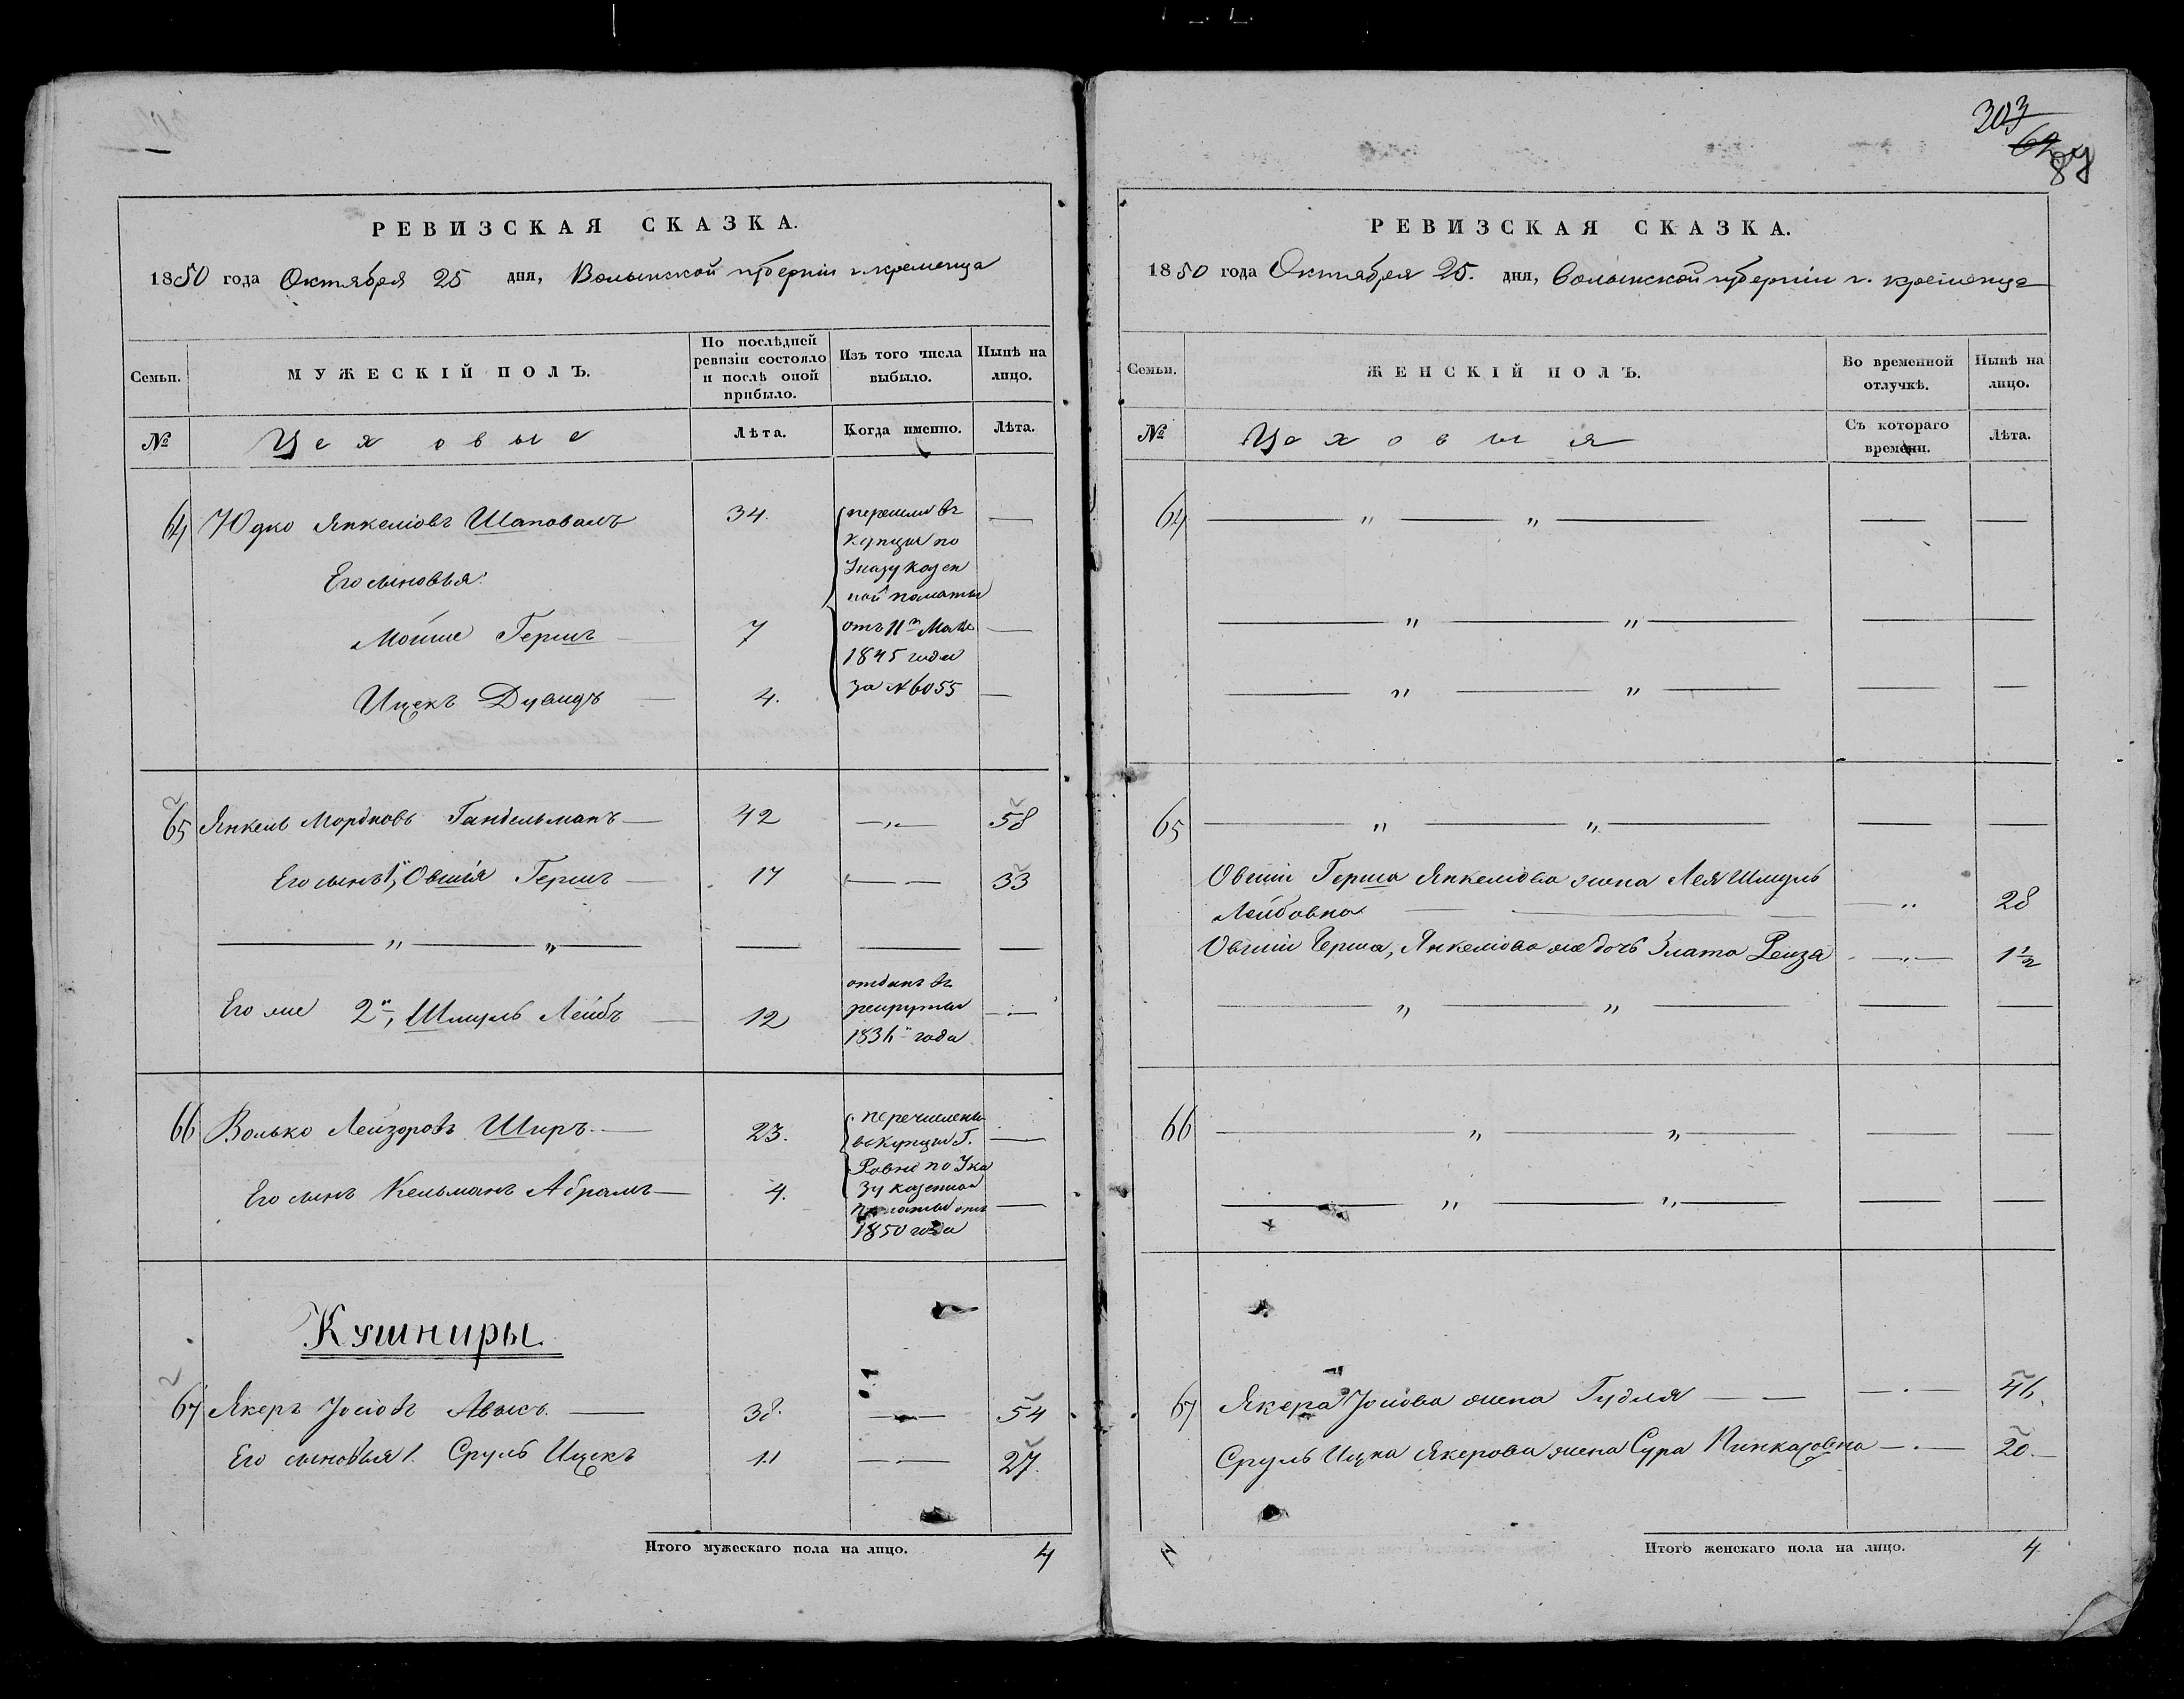 РЕВИЗСКАЯ СКАЗКА.
1850 года Октября 25 дня, Волынской губерніи г. кременца
Семьи.
МУЖЕСКІЙ ПОЛЪ.
По послѣдней ревизіи состояло и послѣ оной прибыло.
Изъ того числа выбыло.
Нынѣ на лицо.
№
Цеховые
Лѣта.
Когда именно.
Лѣта.
64 Юдко Янкеліовъ Шаповалъ 34. перешли въ —
купцы по
Его сыновья: Указу Казен
ной палаты
Мойше Гершъ — 7 отъ 11го Мая —
1845 года
Ицекъ Дувидъ — 4. за №6055 —
65 Янкель Мордковъ Гандельманъ — 42 —„— 58
Его сынъ 1й, Овшія Гершъ — 17 — — 33
— „ — „ — — — —
отданъ въ
Его же 2й, Шмуль Лейбъ — 12 рекруты —.—
1836го года
66 Волько Лейзоровъ Ширъ. — 23. перечислены
въ купцы Г. —
Ровно по Ука
Его сынъ Кельманъ Абрамъ — 4. зу казенной
палаты отъ —
1850 года
Кушниры
67 Якеръ Іосіовъ Авысъ. — 38. — 54
Его сыновья 1. Сруль Ицекъ 11 —.— 27.
Итого мужескаго пола на лицо. 4
303
62
87
РЕВИЗСКАЯ СКАЗКА.
1850 года Октября 25. дня, Волынской губерніи г. кременца
Семьи.
ЖЕНСКІЙ ПОЛЪ.
Во временной отлучкѣ.
Нынѣ на лицо.
№
Цеховыя
Съ котораго времени.
Лѣта.
64 — „ — „ — — —
— „ — „ — — —
— „ — „ — — —
65 — „ — „ — — —
Овшіи Герша Янкеліова жена Лея Шмуль
Лейбовна — — — „ 28
Овшіи Герша, Янкеліова же дочь Злата Рейза —„— 1½
— „ — „ — — —
66 — „ — „ — — —
— „ — „ — — —
67 Якера Іосіова жена Гудля — — —.— 46.
Сруль Ицка Якерова жена Сура Пинкасовна —.— 20.
Итого женскаго пола на лицо. 4